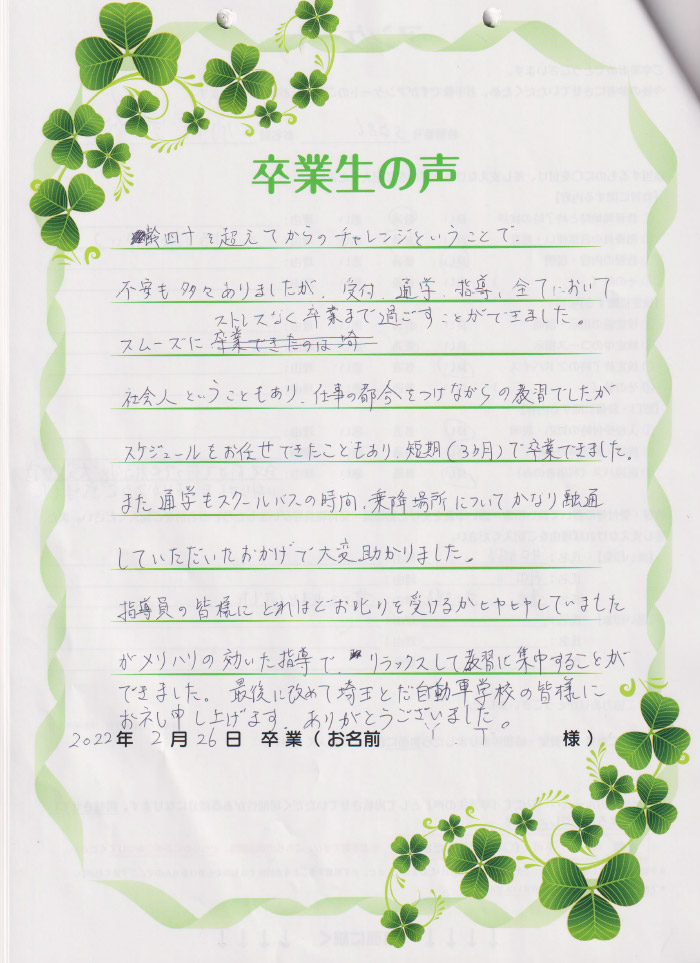 卒業生の声
齢四十を超えてからのチャレンジということで、
不安も多々ありましたが、受付、通学、指導、全てにおいて
ストレスなく卒業まで過ごすことができました。
スムーズに 卒業できたのは埼
社会人ということもあり、仕事の都合をつけながらの教習でしたが
スケジュールをお任せできたこともあり、短期(3ヵ月)で卒業できました。
また通学もスクールバスの時間、乗降場所についてかなり融通
していただいたおかげで大変助かりました。
指導員の皆様にどれほどお叱りを受けるかヒヤヒヤしていました
がメリハリの効いた指導で、リラックスして教習に集中することが
できました。最後に改めて埼玉とだ自動車学校の皆様に
お礼申し上げます。ありがとうございました。
2022年 2月26日 卒業(お名前 Y.T 様)